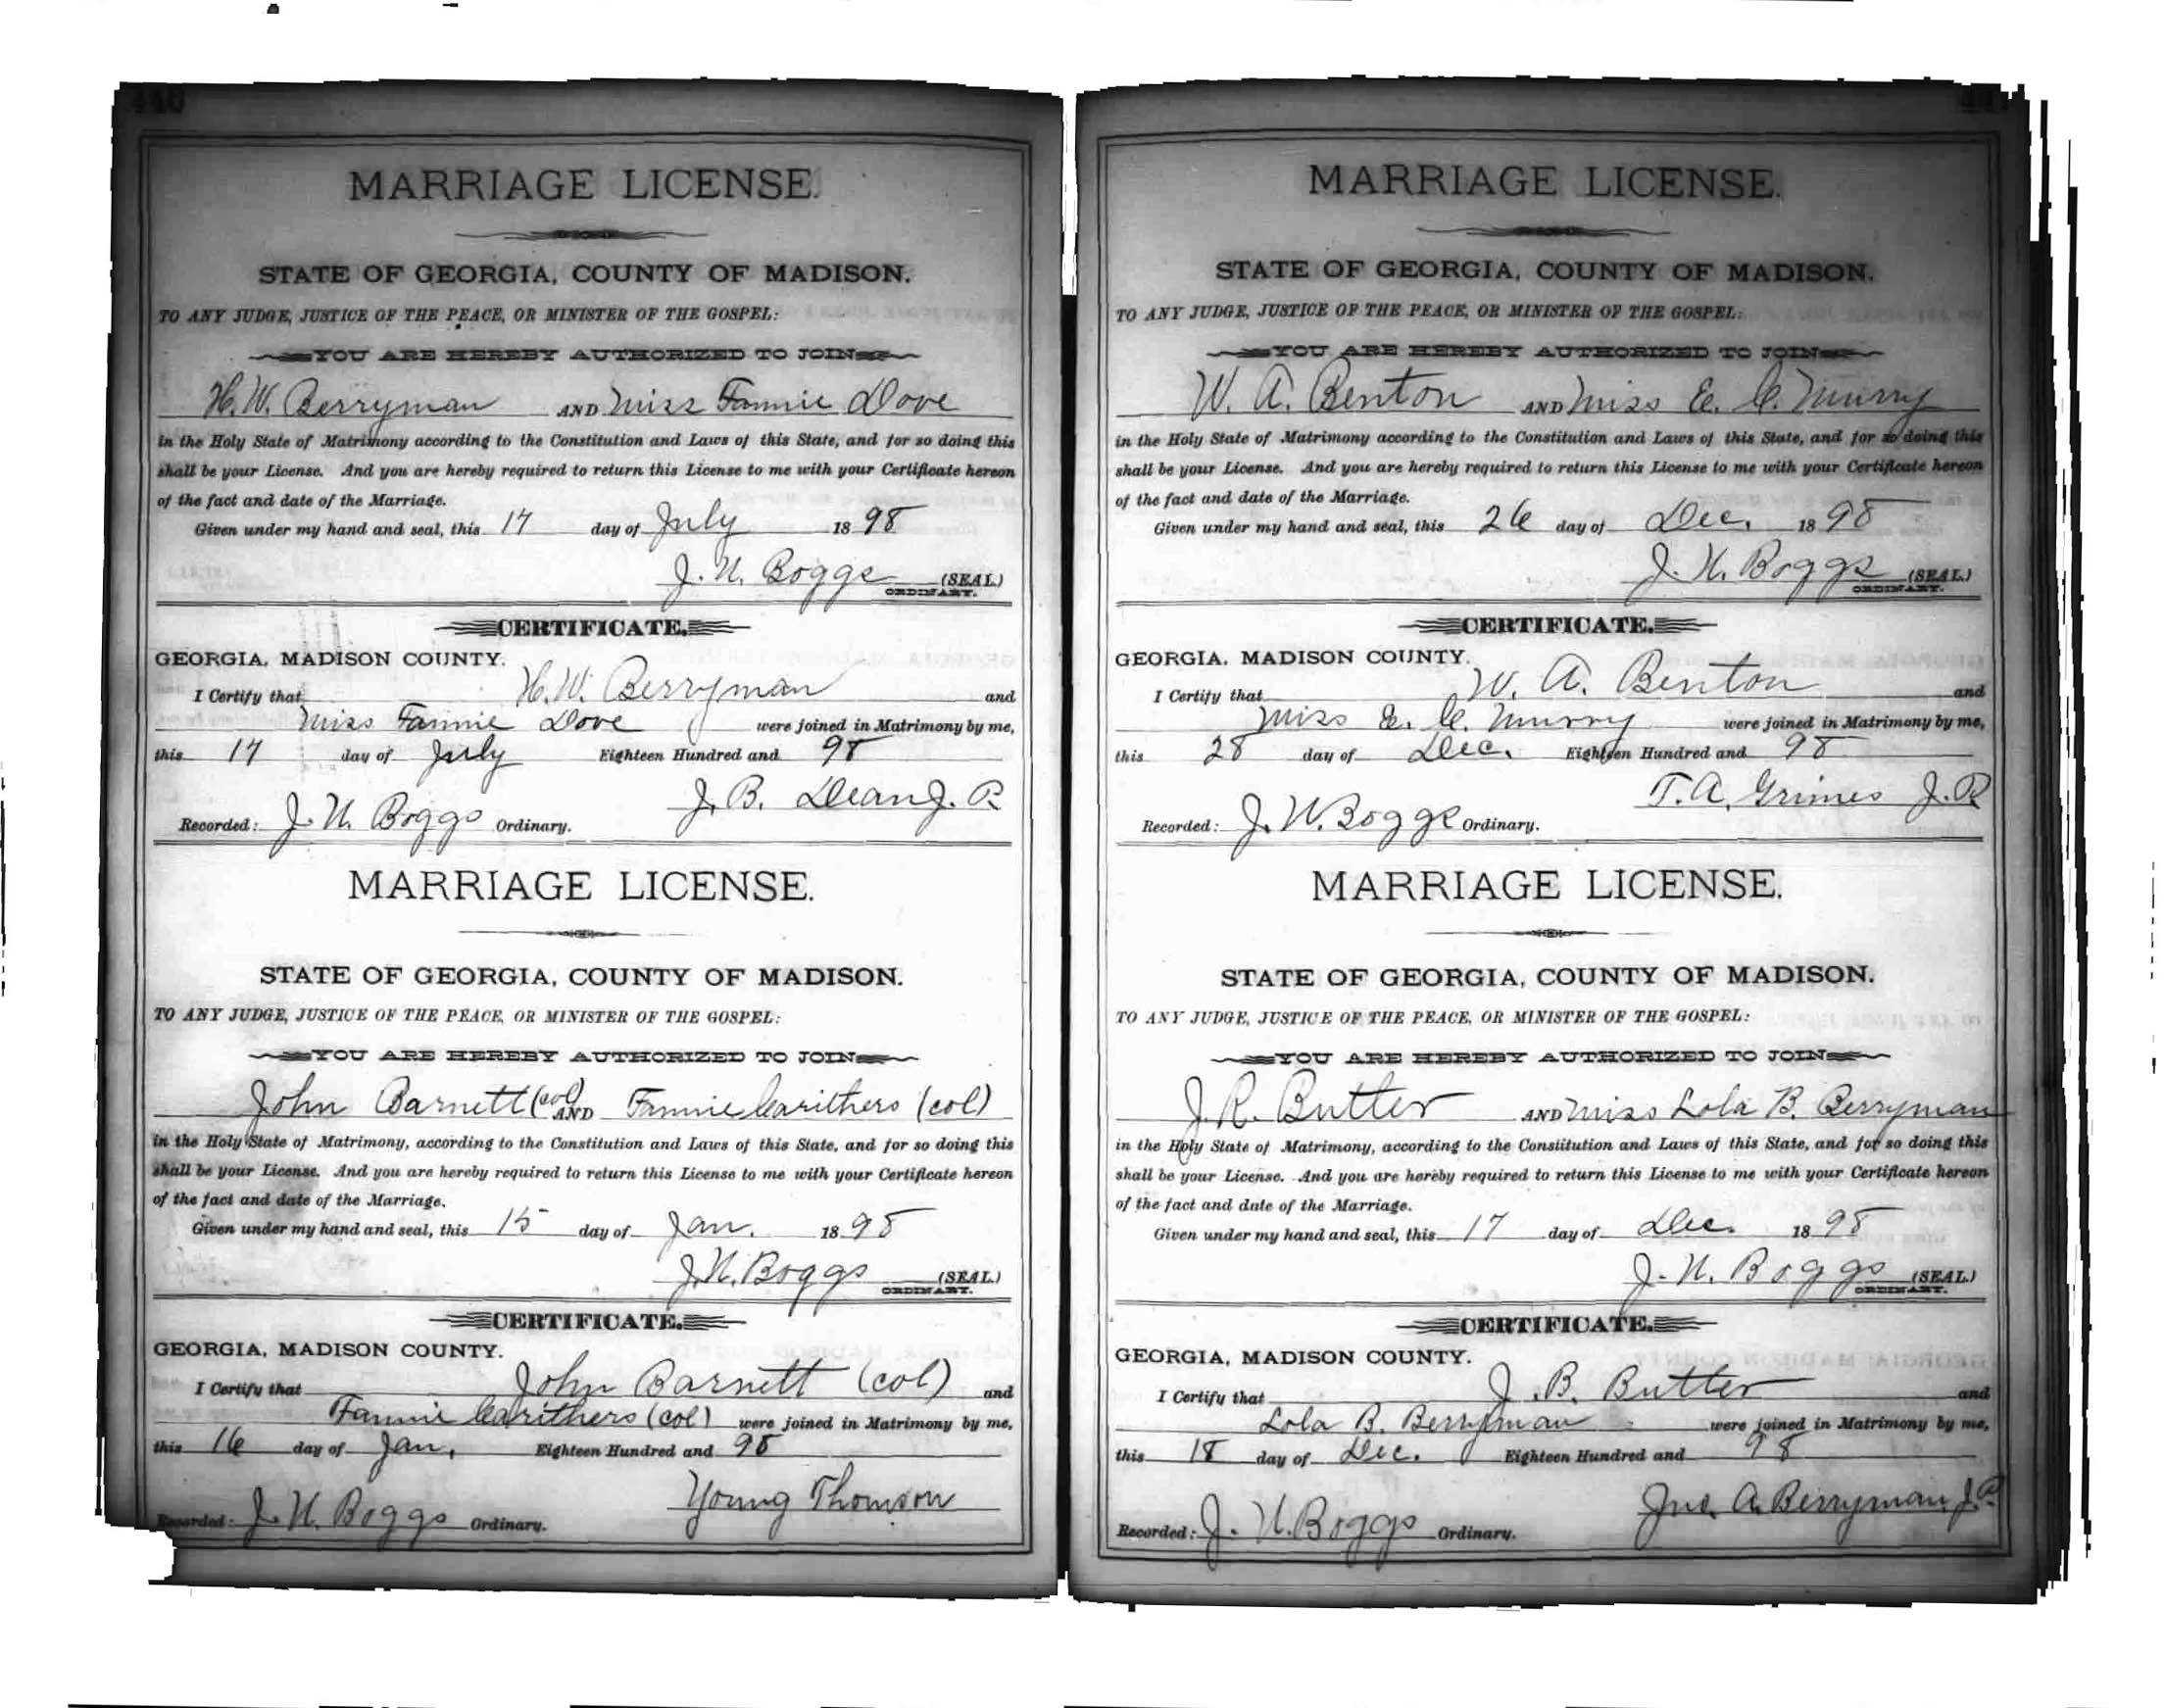 440
MARRIAGE LICENSE.
STATE OF GEORGIA, COUNTY OF MADISON.
TO ANY JUDGE, JUSTICE OF THE PEACE, OR MINISTER OF THE GOSPEL:
YOU ARE HEREBY AUTHORIZED TO JOIN
H. W. Berryman AND Miss Fannie Dove
in the Holy State of Matrimony according to the Constitution and Laws of this State, and for so doing this
shall be your License. And you are hereby required to return this License to me with your Certificate hereon
of the fact and date of the Marriage.
Given under my hand and seal, this 17 day of July 1898
J. N. Boggs (SEAL)
ORDINARY.
CERTIFICATE.
GEORGIA, MADISON COUNTY.
I Certify that H. W. Berryman and
Miss Fannie Dove were joined in Matrimony by me,
this 17 day of July Eighteen Hundred and 98
J. B. Dean J. P.
Recorded: J. N. Boggs Ordinary.
MARRIAGE LICENSE.
STATE OF GEORGIA, COUNTY OF MADISON.
TO ANY JUDGE, JUSTICE OF THE PEACE, OR MINISTER OF THE GOSPEL:
YOU ARE HEREBY AUTHORIZED TO JOIN
John Barnett (col) AND Fannie Carithers (col)
in the Holy State of Matrimony, according to the Constitution and Laws of this State, and for so doing this
shall be your License. And you are hereby required to return this License to me with your Certificate hereon
of the fact and date of the Marriage.
Given under my hand and seal, this 15 day of Jan. 1898
J. N. Boggs (SEAL.)
ORDINARY.
CERTIFICATE.
GEORGIA, MADISON COUNTY.
I Certify that John Barnett (col) and
Fannie Carithers (col) were joined in Matrimony by me,
this 16 day of Jan. Eighteen Hundred and 98
Young Thomson
Recorded: J. N. Boggs Ordinary.
MARRIAGE LICENSE.
STATE OF GEORGIA, COUNTY OF MADISON.
TO ANY JUDGE, JUSTICE OF THE PEACE, OR MINISTER OF THE GOSPEL:
YOU ARE HEREBY AUTHORIZED TO JOIN
W. A. Benton AND Miss E. C. Murry
in the Holy State of Matrimony according to the Constitution and Laws of this State, and for so doing this
shall be your License. And you are hereby required to return this License to me with your Certificate hereon
of the fact and date of the Marriage.
Given under my hand and seal, this 26 day of Dec. 1898
J. N. Boggs (SEAL.)
ORDINARY.
CERTIFICATE.
GEORGIA, MADISON COUNTY.
I Certify that W. A. Benton and
Miss E. C. Murry were joined in Matrimony by me,
this 28 day of Dec. Eighteen Hundred and 98
T. A. Grimes J. P.
Recorded: J. N. Boggs Ordinary.
MARRIAGE LICENSE.
STATE OF GEORGIA, COUNTY OF MADISON.
TO ANY JUDGE, JUSTICE OF THE PEACE, OR MINISTER OF THE GOSPEL:
YOU ARE HEREBY AUTHORIZED TO JOIN
J. R. Butler AND Miss Lola B. Berryman
in the Holy State of Matrimony, according to the Constitution and Laws of this State, and for so doing this
shall be your License. And you are hereby required to return this License to me with your Certificate hereon
of the fact and date of the Marriage.
Given under my hand and seal, this 17 day of Dec. 1898
J. N. Boggs (SEAL.)
ORDINARY.
CERTIFICATE.
GEORGIA, MADISON COUNTY.
I Certify that J. B. Butler and
Lola B. Berryman were joined in Matrimony by me,
this 18 day of Dec. Eighteen Hundred and 98
Jno. A. Berryman J. P.
Recorded: J. N. Boggs Ordinary.